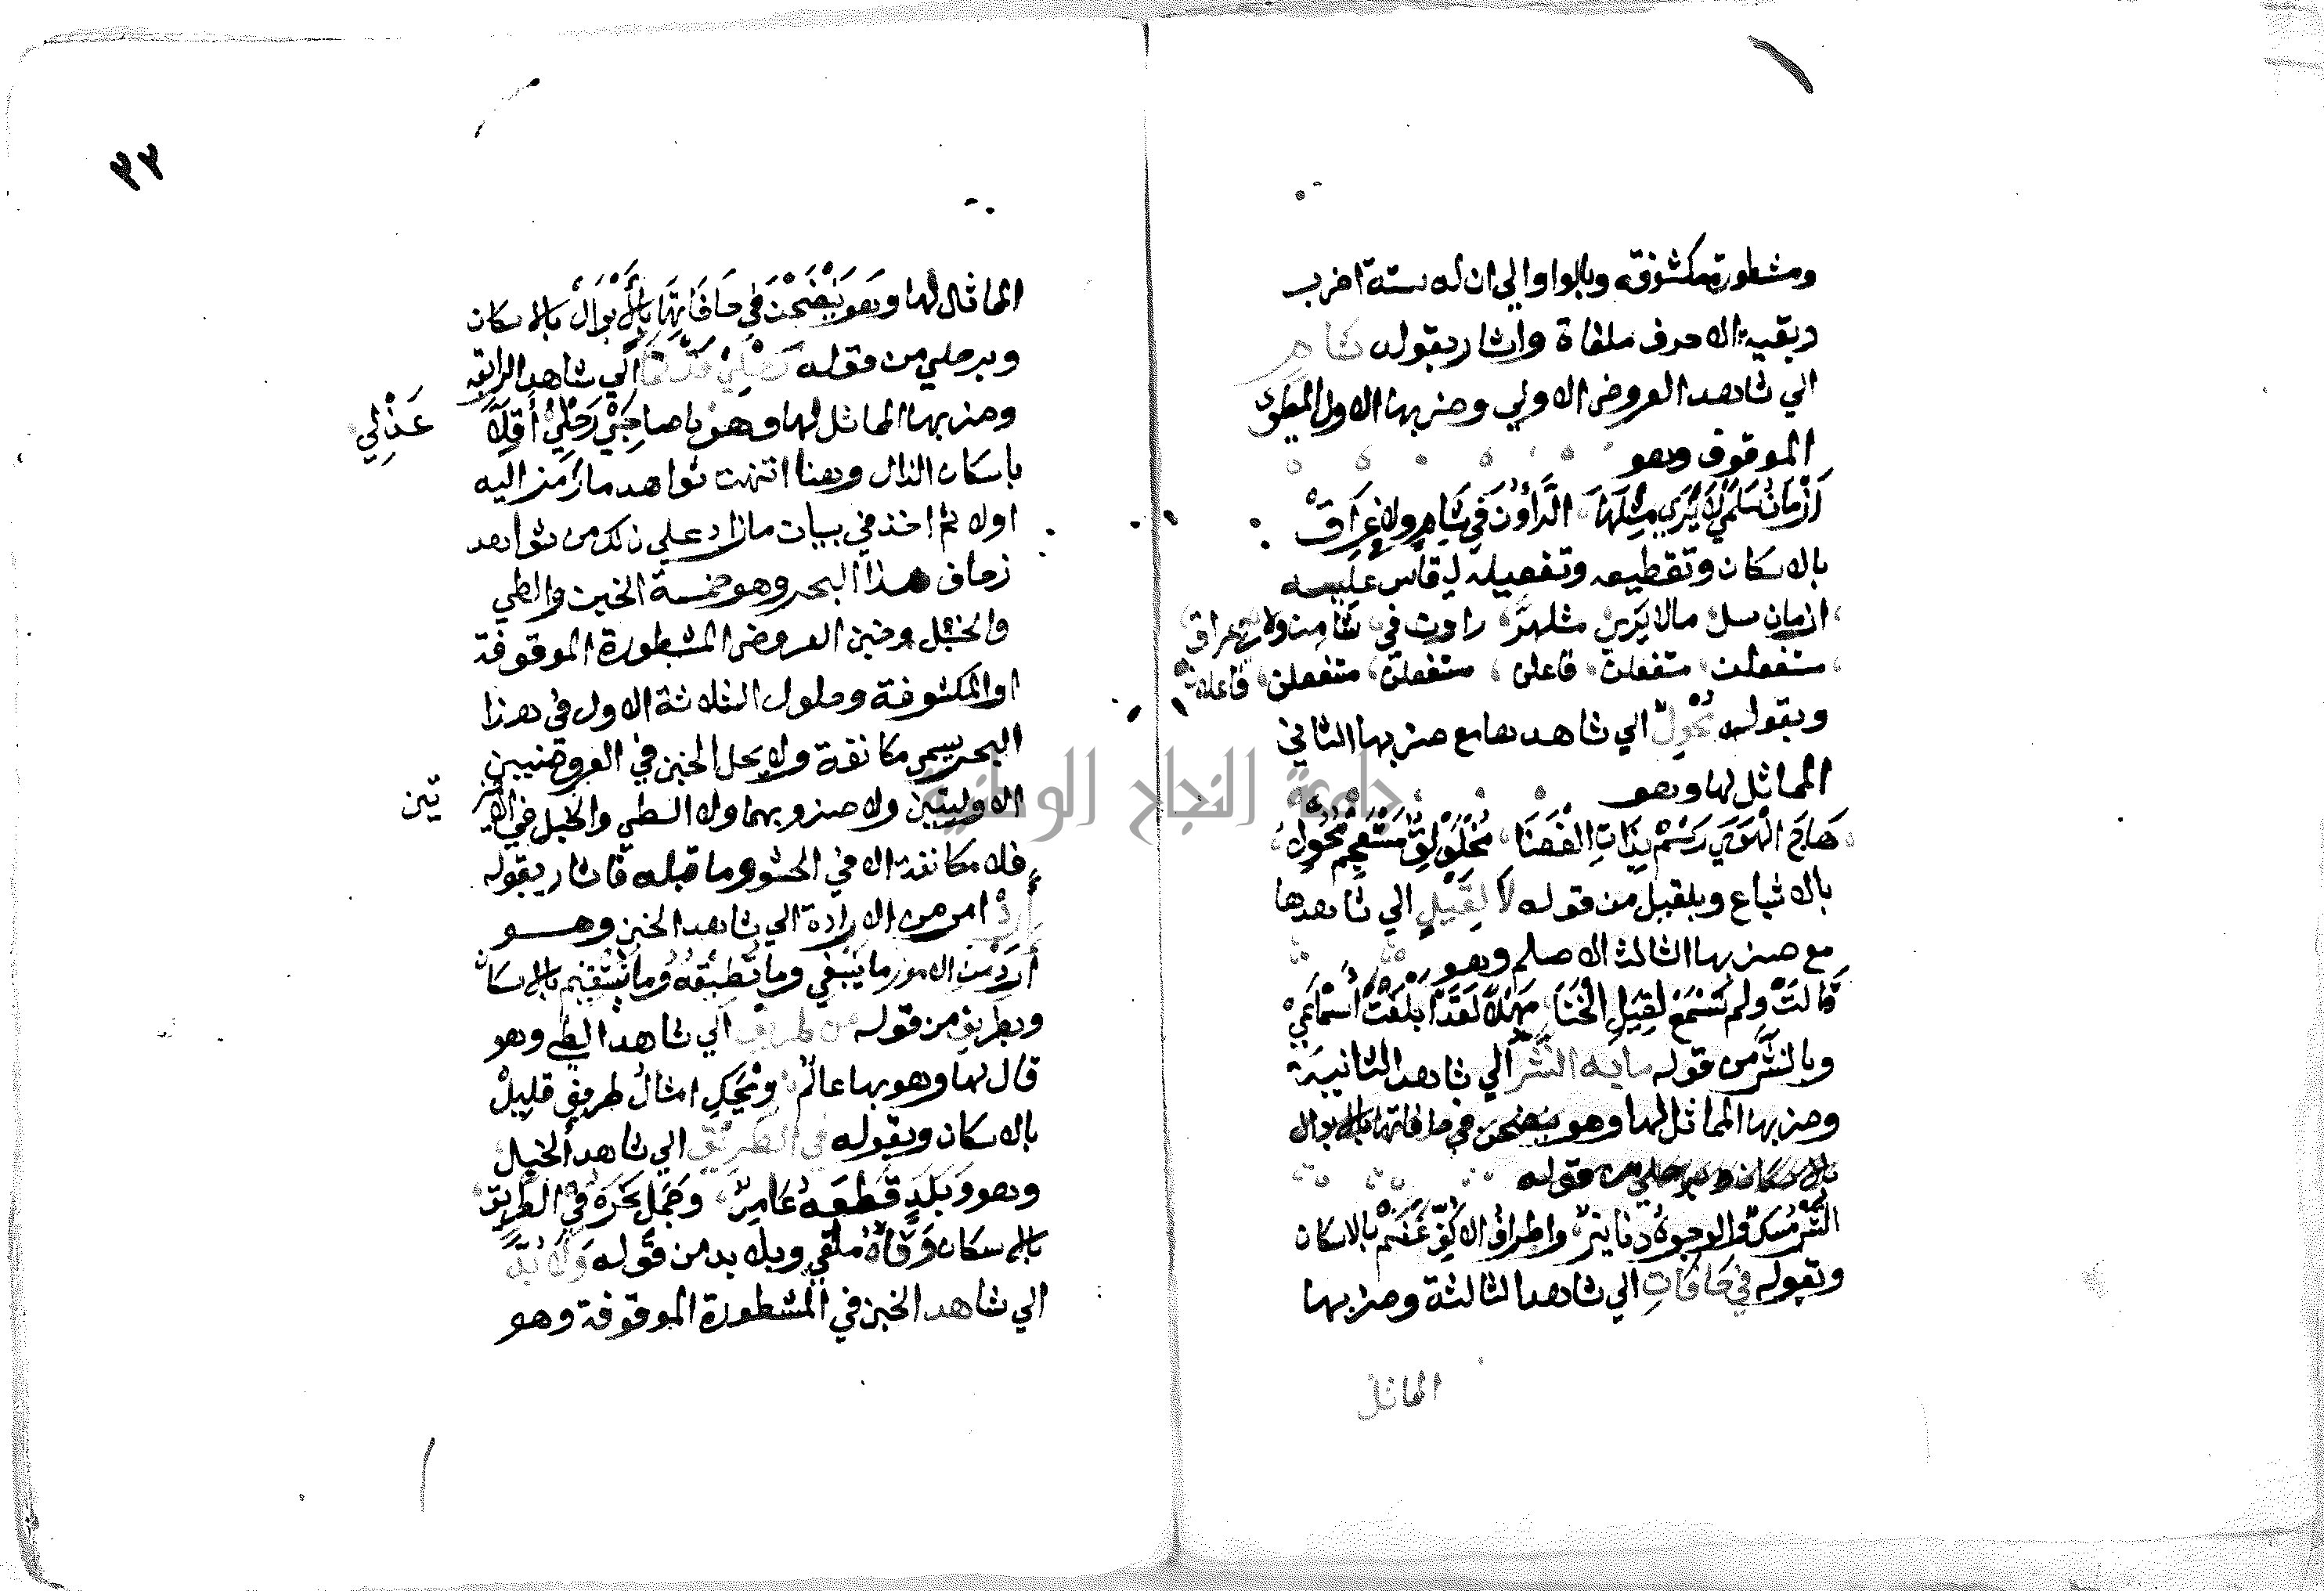 ومشطورة مكشوفة وبالواو الي ان له ستة اضرب
وبقية الاحرف ملغاة واشار بقوله شام
الي شاهد العروض الاولي وضربها الاول المطوي
الموقوف وهو
أَزْمَانُ سَلْمَي لَا يَرَي مِثْلَهَا الرَّاؤُنَ فِي شَامٍ وَلَا عِرَاقْ
بالاسكان وتقطيعه وتفعيله ليقاس عليه
ازمان سل مالا يري مثلهر راون في شامن ولا عراق
مستفعلن مستفعلن فاعلن مستفعلن مستفعلن فاعلان
وبقوله مُحْوِلٌ الي شاهدها مع ضربها الثاني
المماثل لها وهو
هَاجَ الْهَوَي رَسْمٌ بِذَاتِ الْغَضَا مُخْلَوْلِقٌ مُسْتَعْجِمٌ مُحْوِلُ
بالاشباع وبلقيل من قوله لَا لِقِيْلٍ الي شاهدها
مع ضربها الثالث الاصلم وهو
قَالَتْ وَلَمْ تَسْمَعْ لِقِيلِ الْخَنَا مَهْلًا لَقَدْ ابْلَغْتَ أَسْمَاعِيْ
وبالنشر من قوله مابه النَّشْر الي شاهد الثانية
وضربها المماثل لها وهو ينضحن في حافاتها بالابوال
بالاسكان وبرحلي من قوله
النَّشْرُ مِسْكٌ والوجوهُ دنانيرٌ واطرافُ الاكفِّ عَنَمْ بالاسكان
وبقوله في حَافَاتِ الي شاهد الثالثة وضربها
المماثل
٢٢
المماثل لها وهو يَنْضَحْنَ فِي حَافَاتِهَا بِالْأَبْوَالْ بالاسكان
وبرحلي من قوله رَحْلِيْ الي شاهد الرابعة
وضربها المماثل لها وهو يا صاحِبَيْ رَحْلِيْ أَقِلَّا
عَذْلِي
باسكان الذال وهنا انتهت شواهد ما رمز اليه
اولا ثم اخذ في بيان مازاد علي ذلك من شواهد
زحاف هذا البحر وهو خمسة الخبن والطي
والخبل وخبن العروض المشطورة الموقوفة
او المكشوفة وحلول الثلاثة الاول في هذا
البحر يسمي مكانفة ولا يحل الخبن في العروضيين
الاوليتين ولا ضروبهما ولا الطي والخبل في الاخير
تين
فلا مكانفة الا في الحشو وما قبله فاشار بقوله
أَرِدْ امر من الارادة الي شاهد الخبن وهو
أَرِدْ من الامور ما ينبغي وما تُطِيقُهُ وما يَسْتَقِيم بالاسكان
وبطريفٍ من قوله من طريفٍ الي شاهد الطي وهو
قال لها وهو بها عالمٌ ويْحَكِ امثالُ طريفٍ قليلْ
بالاسكان وبقوله في الطريق الي شاهد الخبل
وهو وَبَلَدٍ قَطَعَهُ عَامِرٌ وَجَمَلٍ نَحَرَهُ في الطريق
بالاسكان وَفَاهُ ملقي وبلا بد من قوله وَلَا بُدَّ
الي شاهد الخبن في المشطورة الموقوفة وهو
جامعة النجاح الوطنية